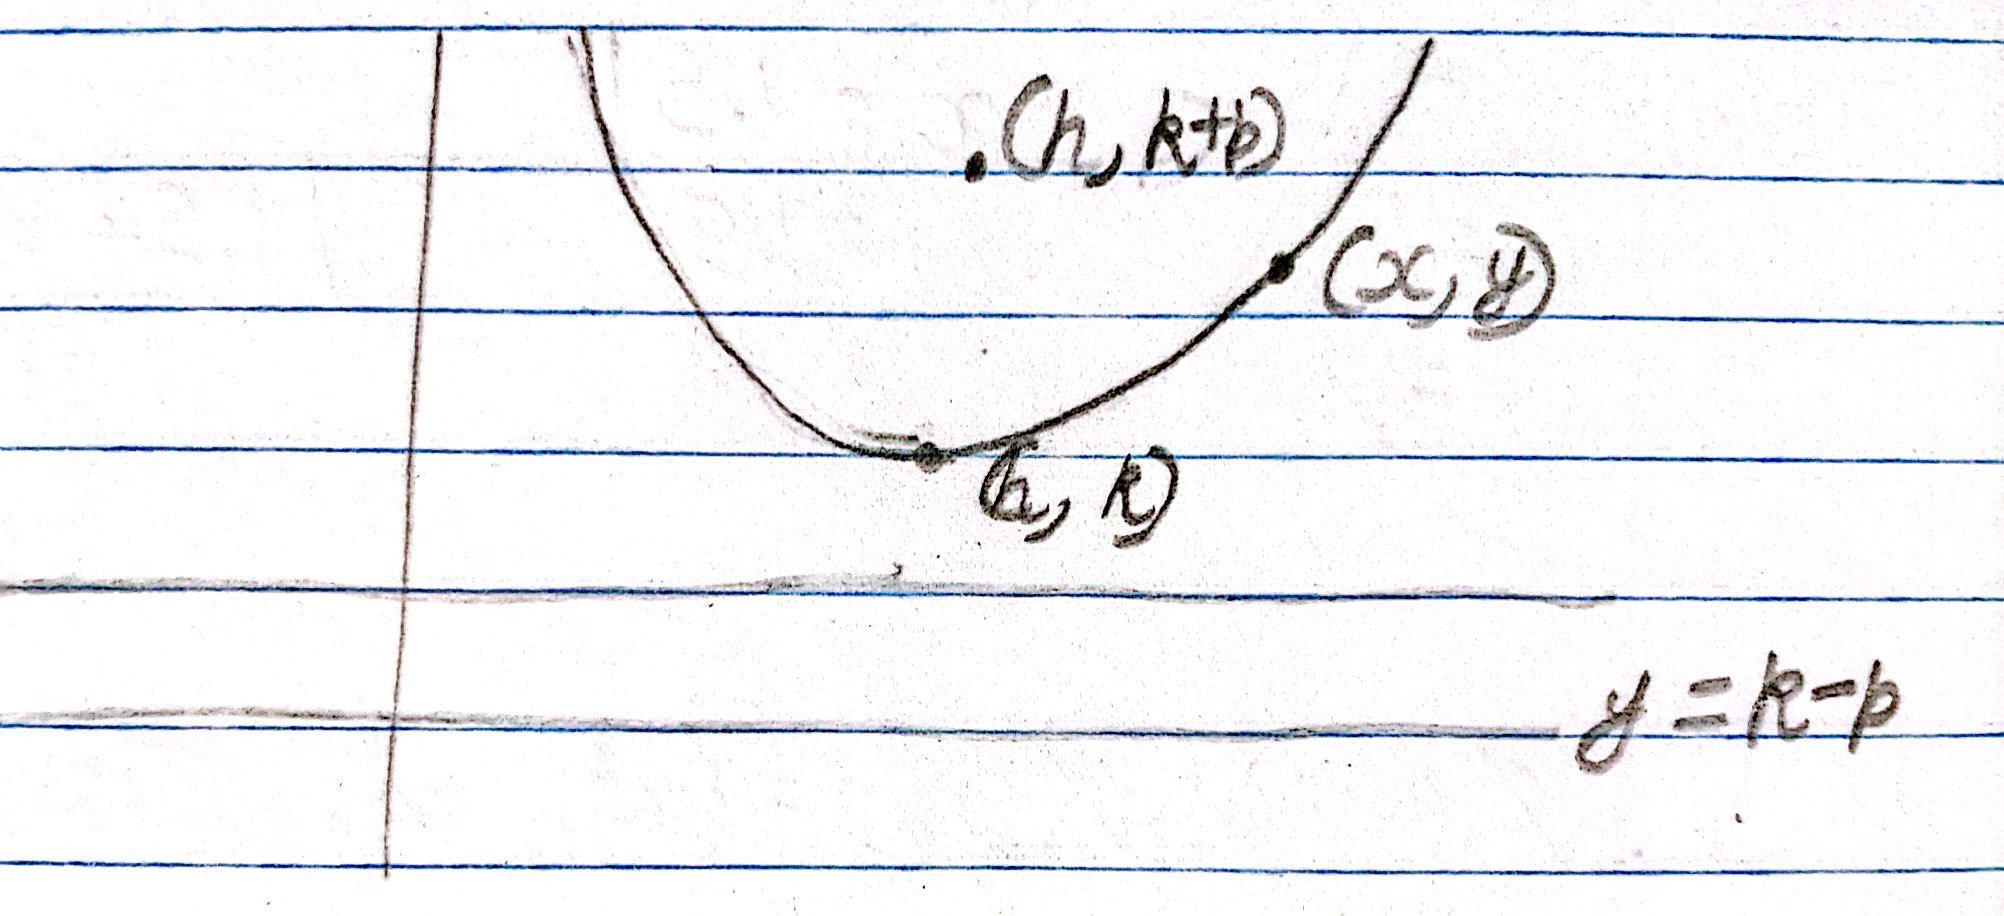 (h, k+p)
(x, y)
(h, k)
y = k-p